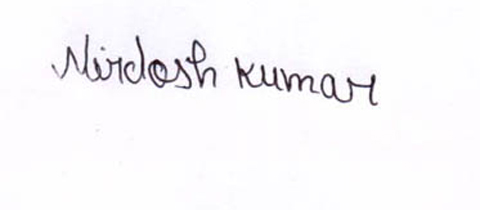 Nirdosh Kumar